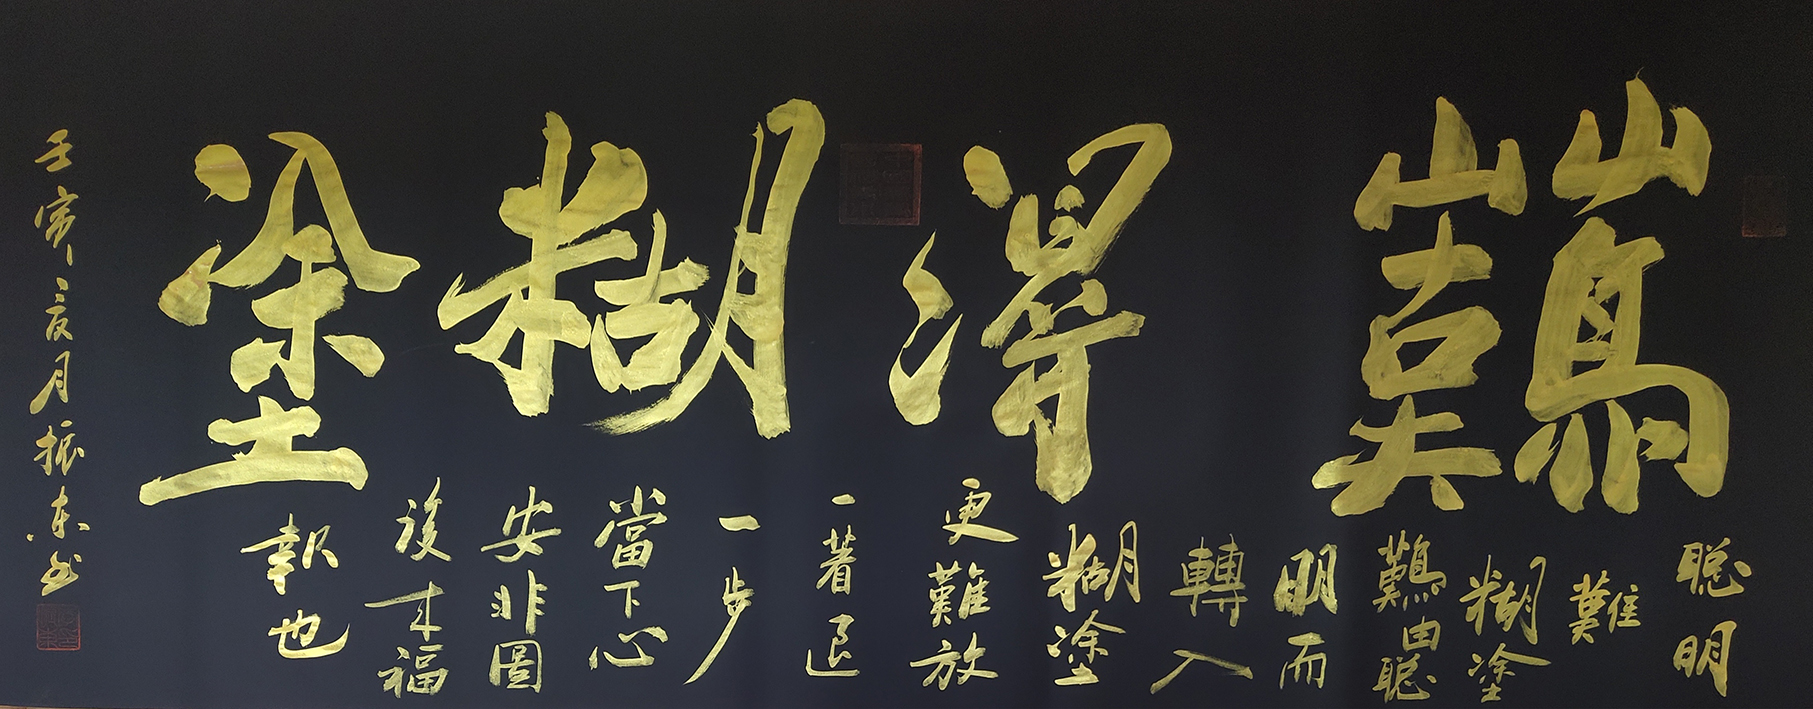 難得糊塗
聰明
難
糊塗
難由聰
明而
轉入
糊塗
更難放
一著退
一步
當下心
安非圖
後来福
報也
壬寅亥月振东书